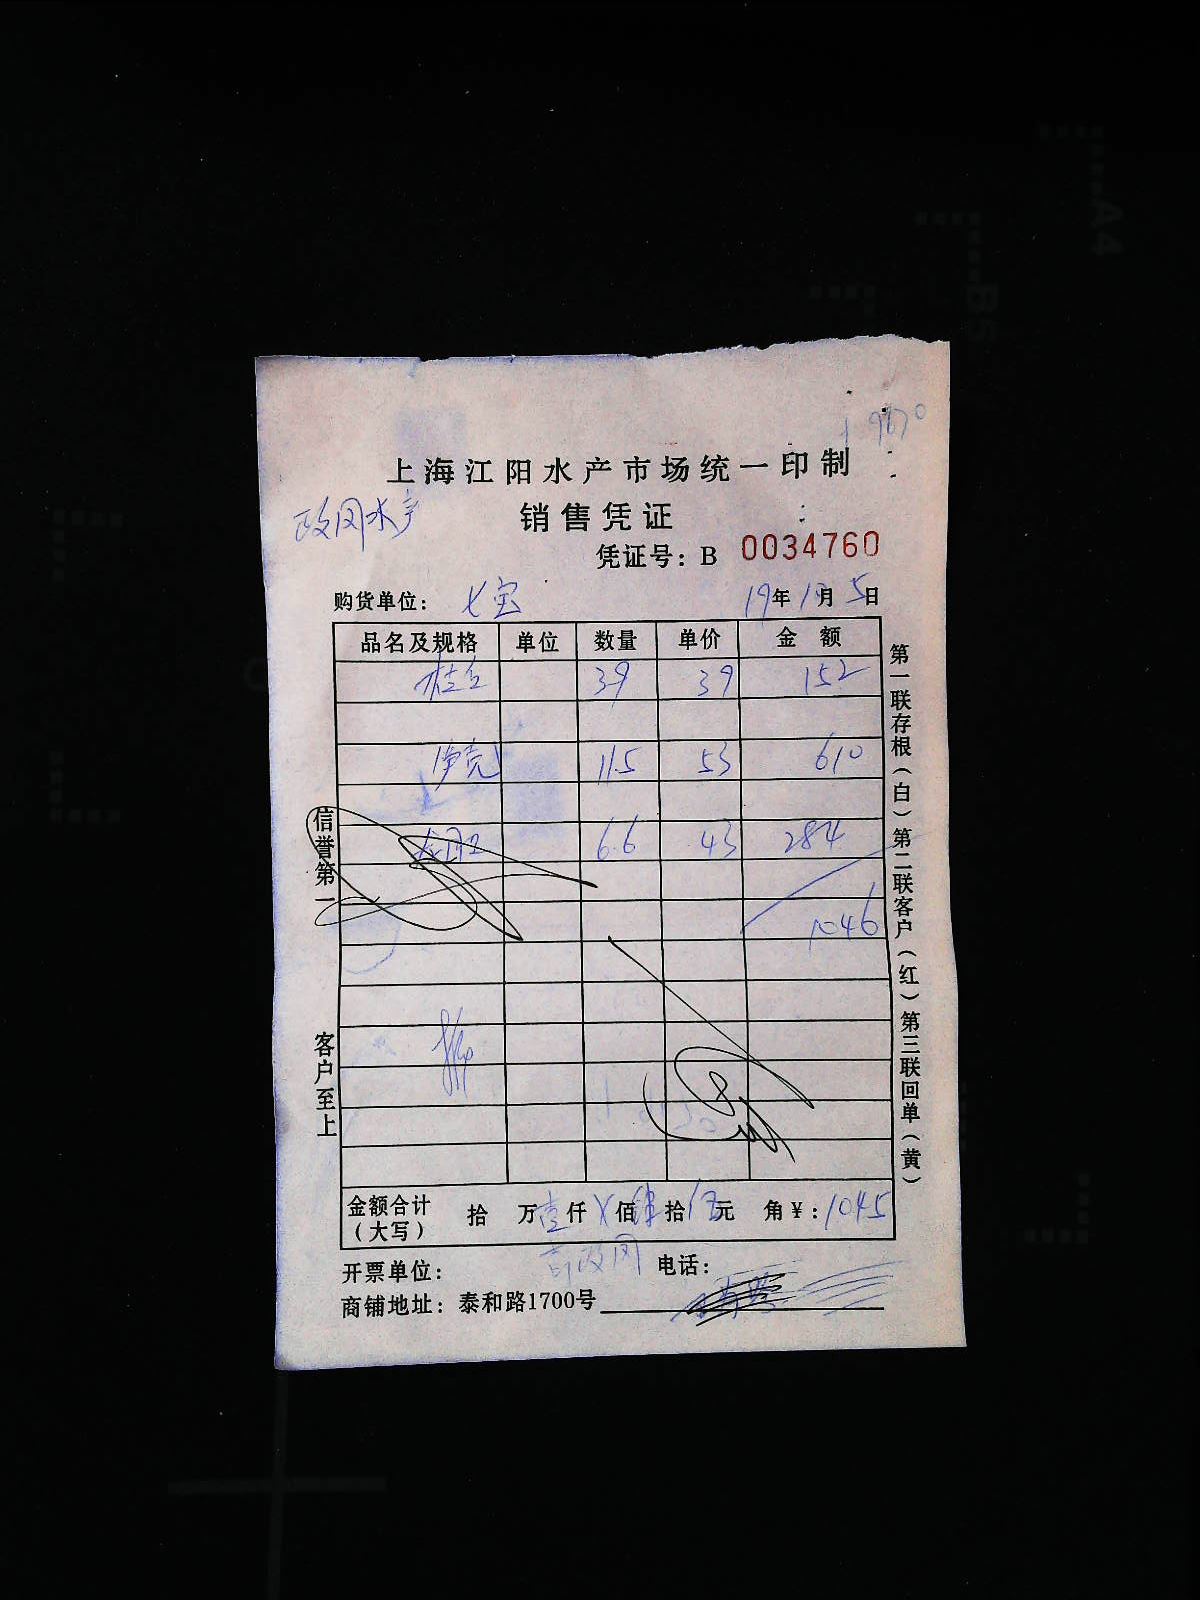 上海江阳水产市场统一印制
政风水产
销售凭证
凭证号：B 0034760
购货单位： 七宝 19年 月 5日
品名及规格 单位 数量 单价 金 额
39 39 152
净壳 11.5 53 610
6.6 43 284
1046
金额合计（大写） 拾 万壹仟X佰肆拾伍元 角￥：1045
开票单位： 电话：
商铺地址：泰和路1700号
信誉第一
客户至上
第一联存根（白）第二联客户（红）第三联回单（黄）